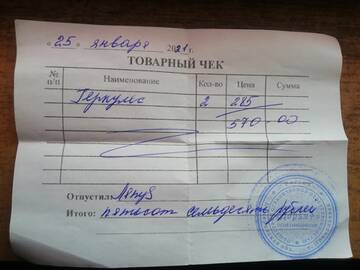 « 25 » января 2021 г.
ТОВАРНЫЙ ЧЕК
№ п/п Наименование Кол-во Цена Сумма
Геркулес 2 285
570-00
Отпустил
Итого: пятьсот семьдесят рублей